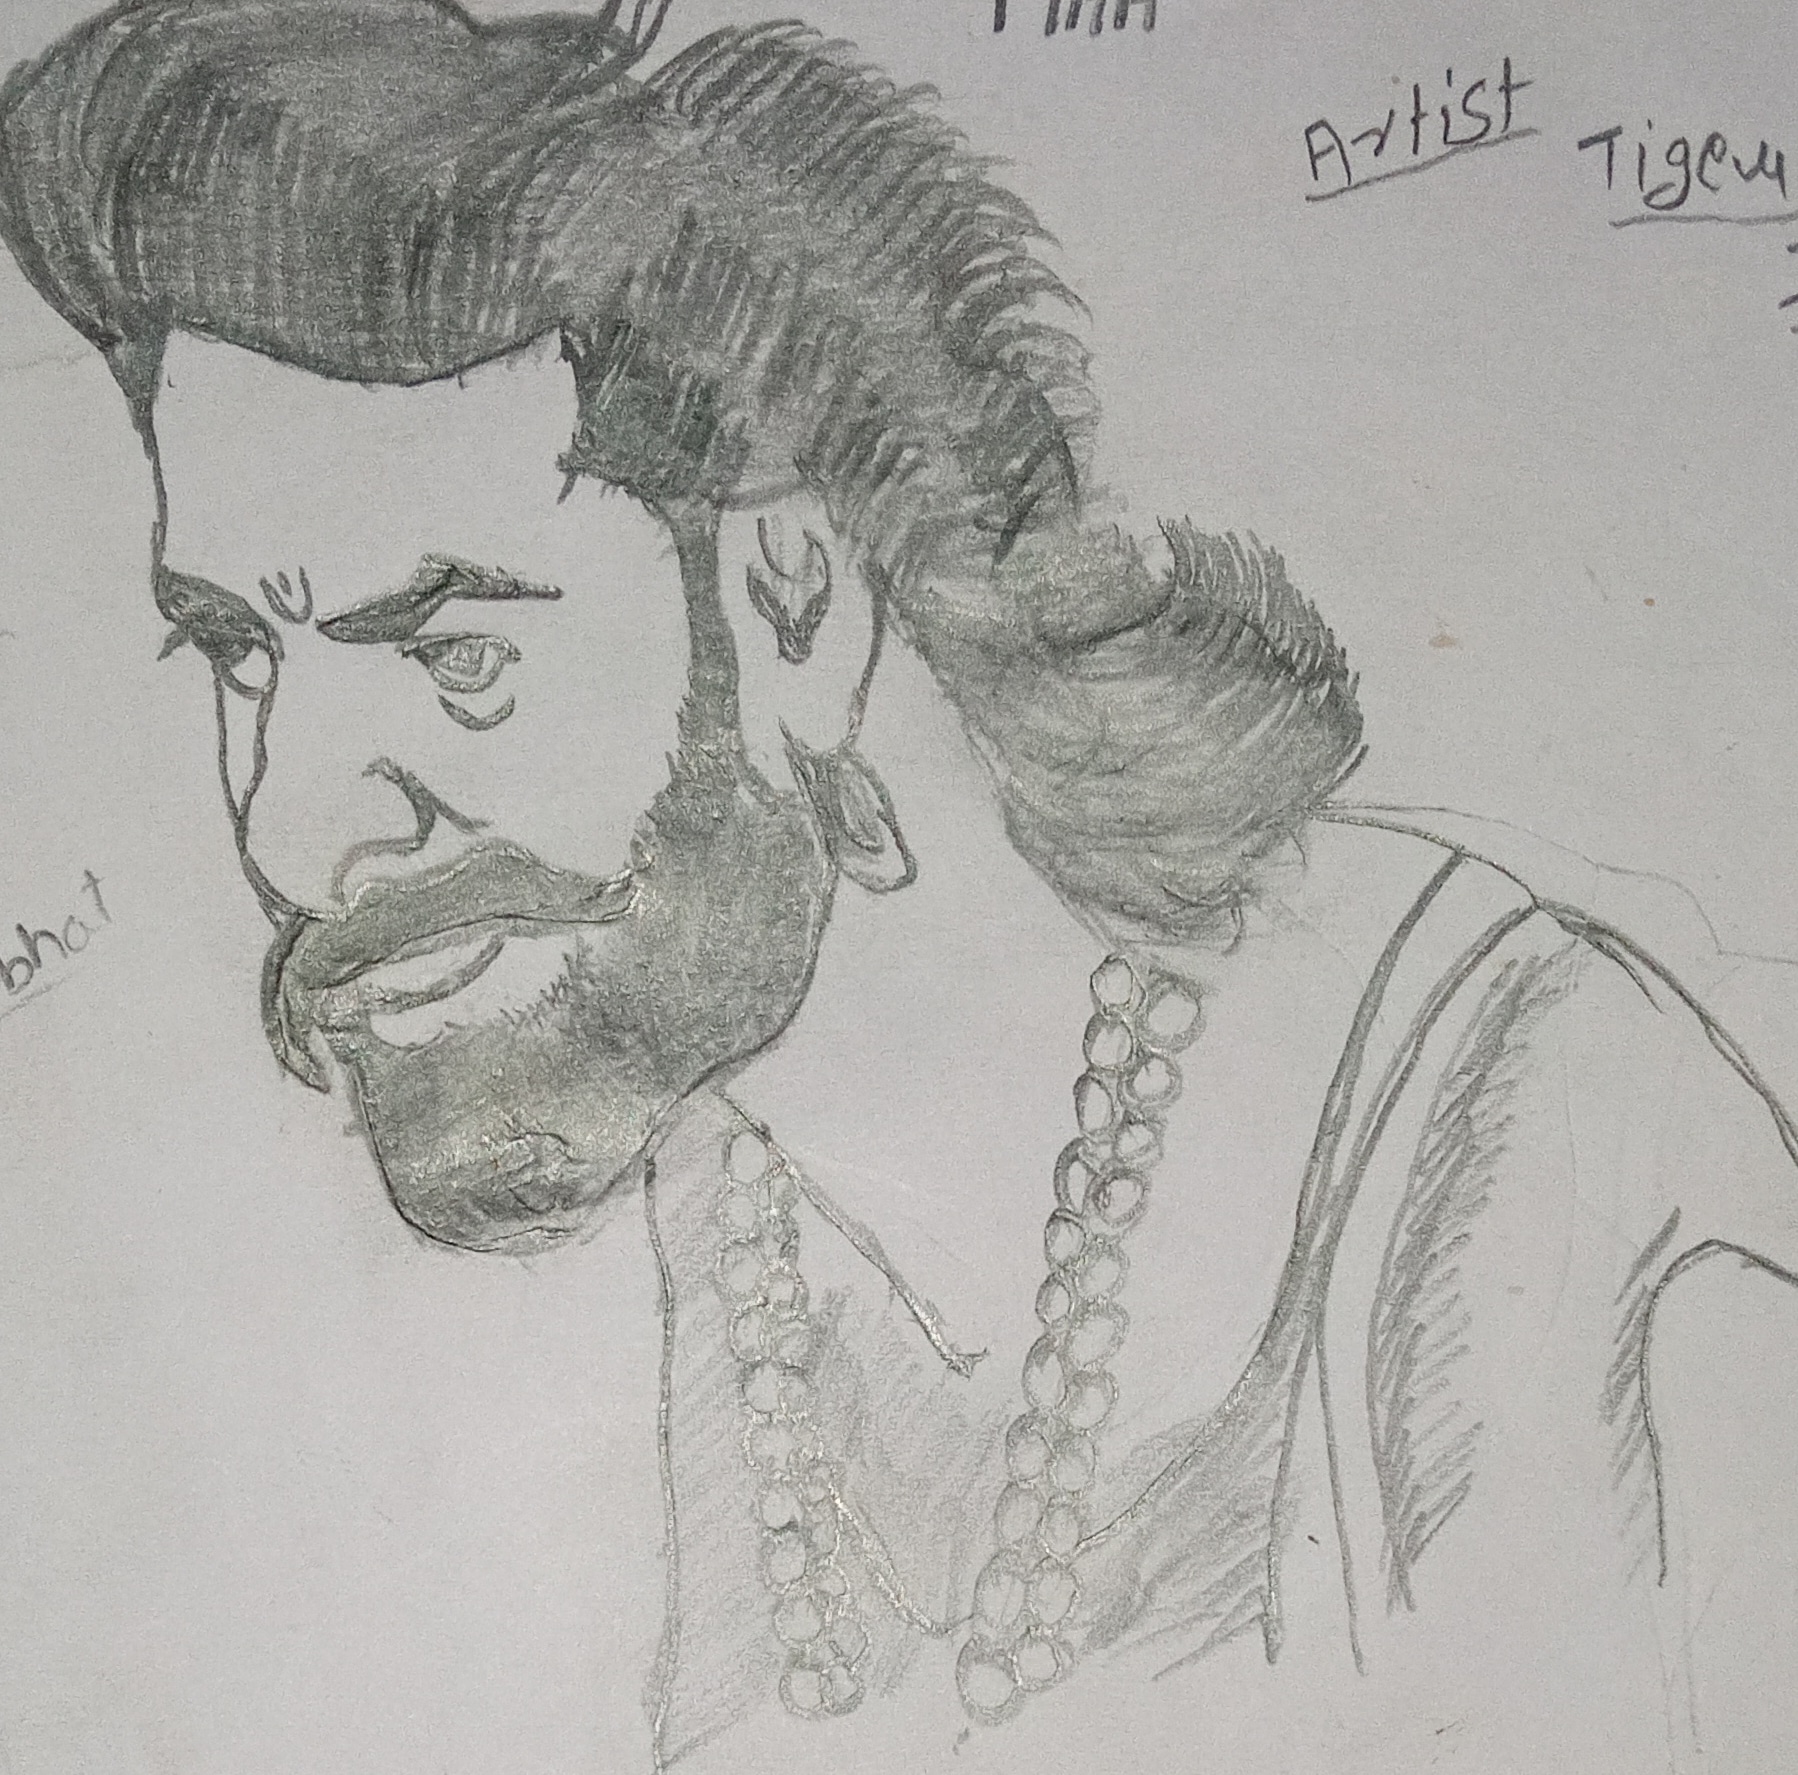 Artist Tiger
bhat